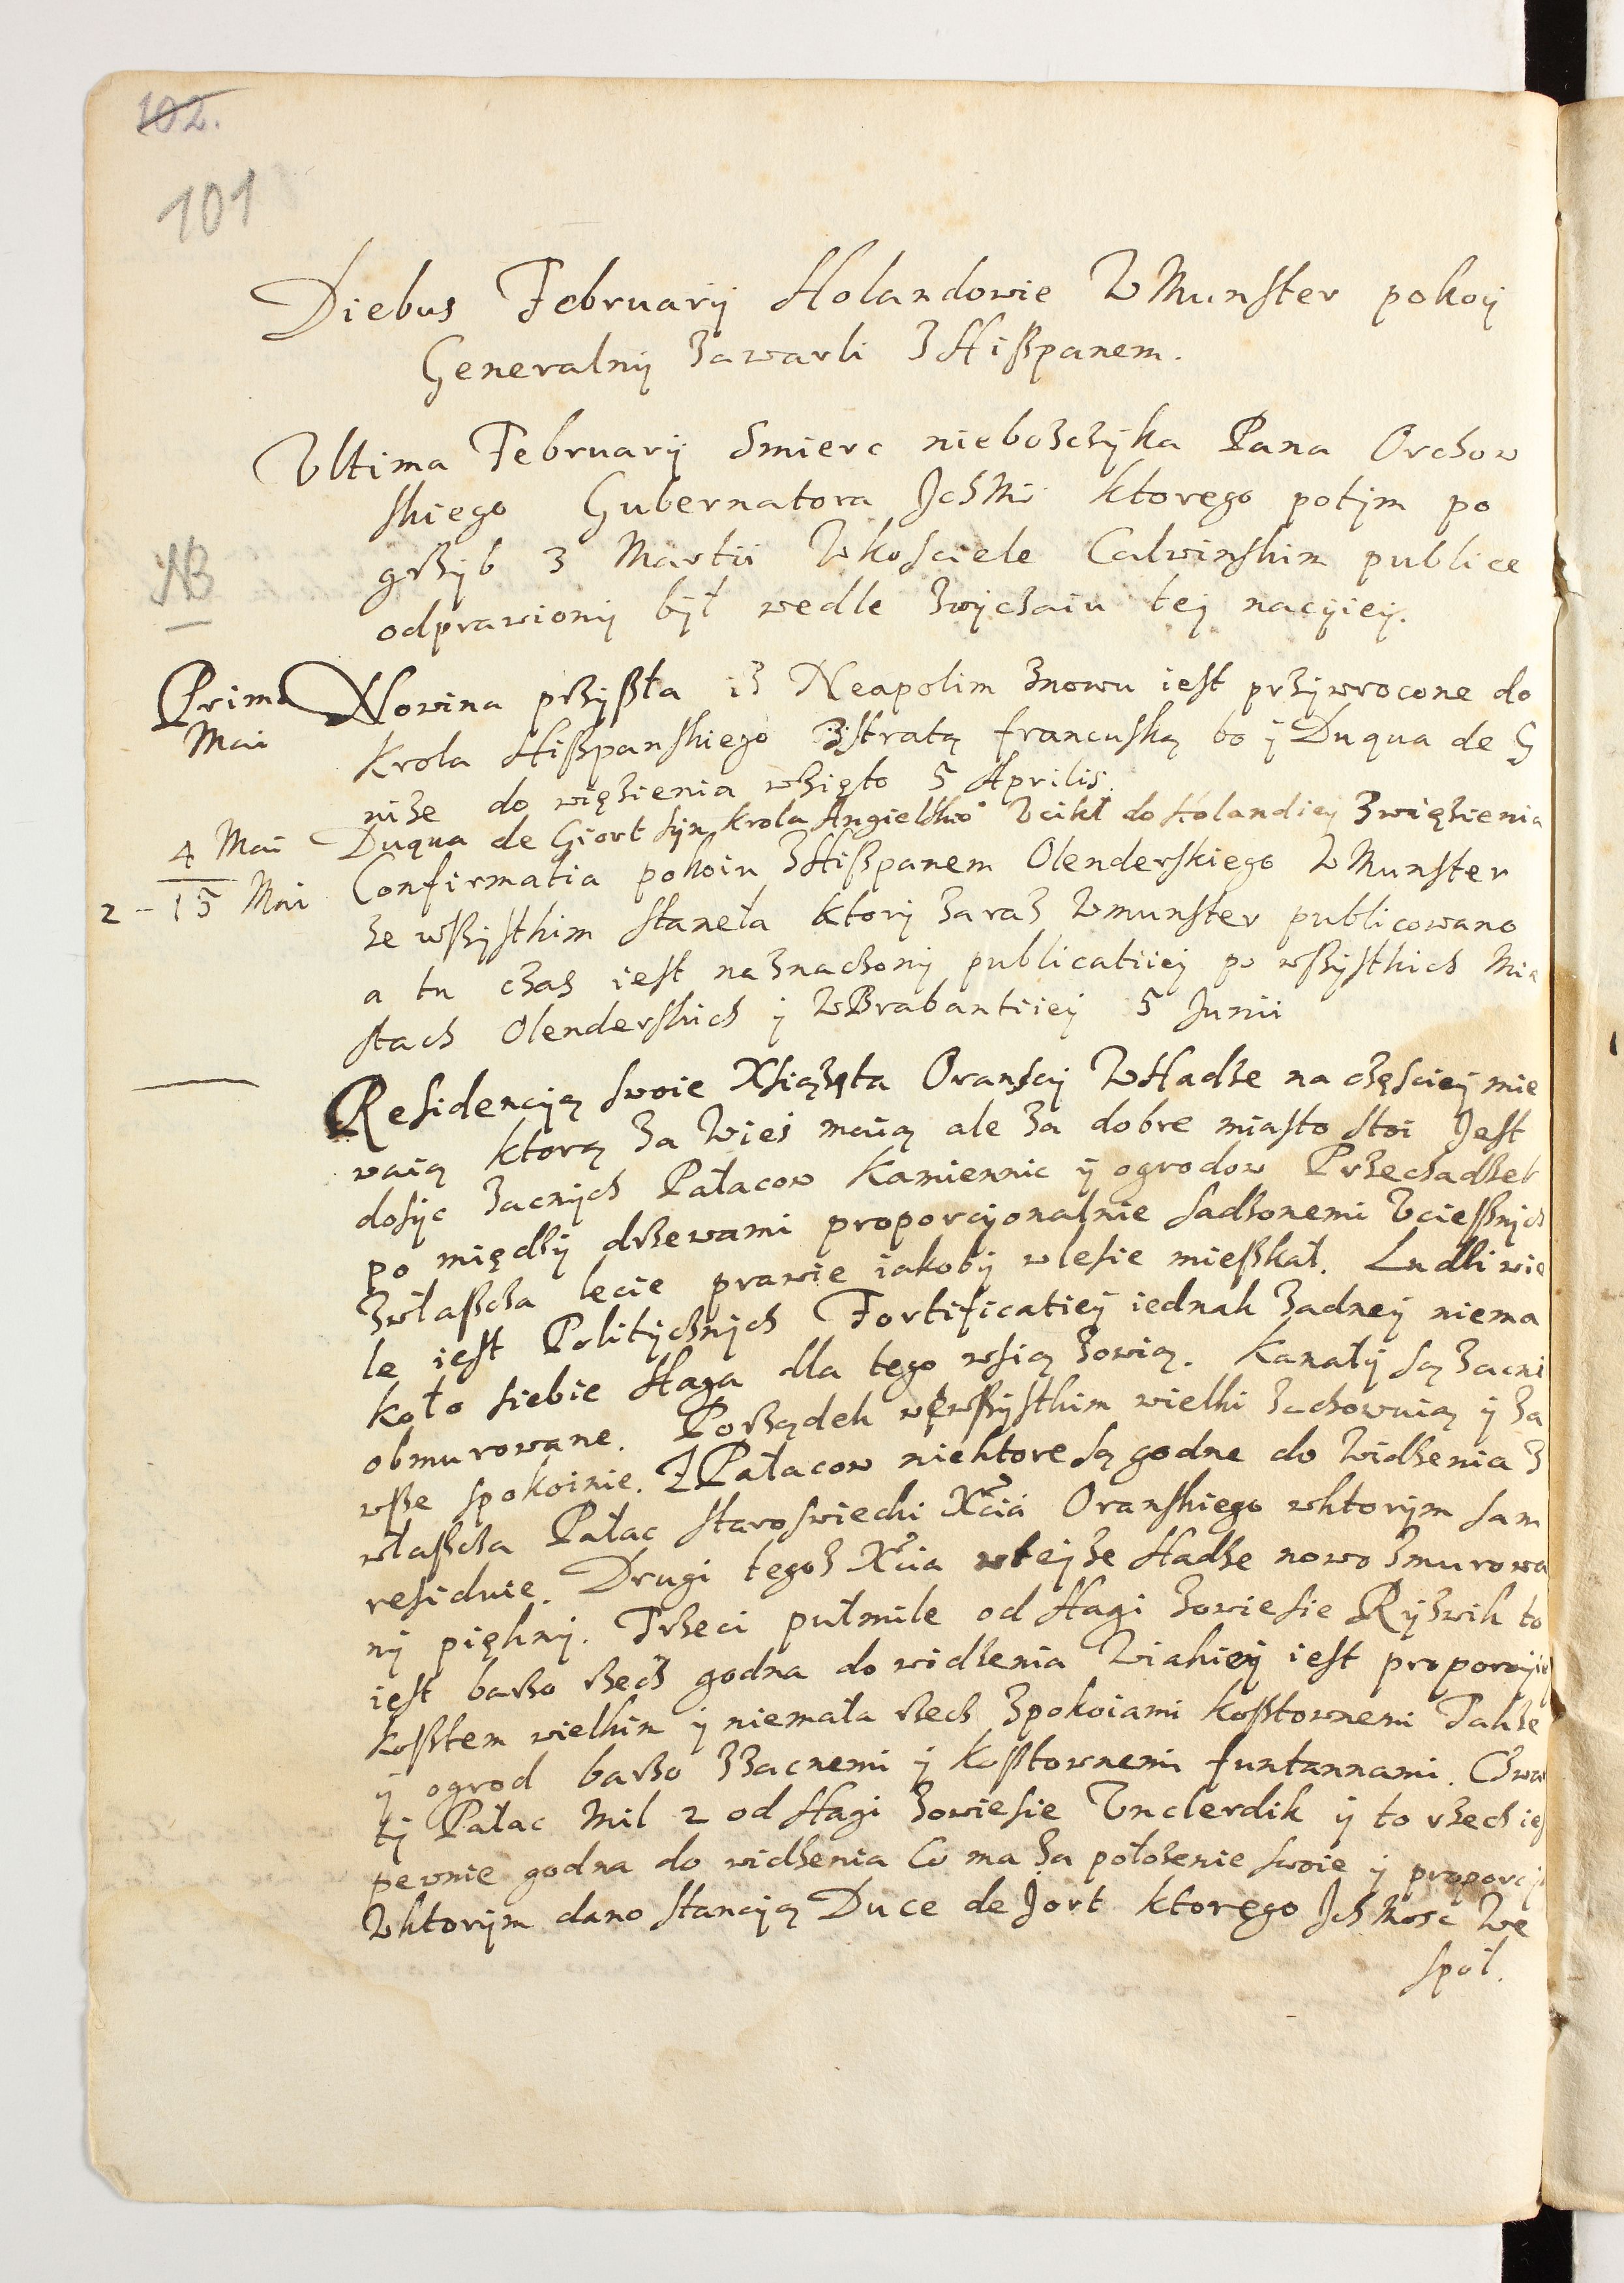 102.
101
Diebus Februarij Holandowie W Munster pokoy
Generalny zawarli z Hißpanem.
Vltima Februarij Smierc nieboszczyka Pana Orchow
skiego Gubernatora JchMi ktorego potym po
grzyb 3 Martii W kosciele Calwinskim publice
NB
odprawiony był wedle zwyczaiu tey nacyiey.
Prima Mai
Nowina przyßła iz Neapolim znowu iest przywrocone do
Krola Hißpanskiego z stratą francuską bo y Duqua de G
uize do więzienia wzięto 5 Aprilis.
4 Mai Duqua de Giort syn Krola Angielsko Vcikł do Holandiey z więzienia
2 - 15 Mai Confirmatia pokoiu z Hißpanem Olenderskiego W Munster
ze wßystkim staneła ktory zaraz W munster publicowano
a tu czas iest naznaczony publicatiiey po wßystkich Mia
stach Olenderskich y W Brabantiiey 5 Junii
Residencyą swoie Xsiążęta Oranscy W Hadze na częsciey mie
waią ktorą za Wies maią ale za dobre miasto stoi Jest
dosyc zacnych Pałacow Kamiennic y ogrodow Przechadzek
po między drzewami proporcyonalnie sadzonemi Vcießnych
zwłaßcza lecie prawie iakoby w lesie mießkał. Ludzi wie
le iest Politycznych Fortificatiey iednak zadney niema
koło siebie Haga dla tego wsią zowią. Kanały są zacni
obmurowane. Porządek we wßystkim wielki zachowuią y za
wße spokoinie. Z Pałacow niektore są godne do Widzenia z
właßcza Pałac staroswiecki Xcia Oranskiego w ktorym sam
residuie. Drugi tegoz Xcia w teyze Hadze nowo zmurowa
ny piękny. Trzeci pułmile od Hagi zowiesie Ryzwik to
iest barzo rzecz godna do widzenia W iakiey iest proporcyiey
koßtem wielkim y niemała rzecz z pokoiami koßtownemi Takze
y ogrod barzo z zacnemi y koßtownemi funtannami. Czwar
ty Pałac Mil 2 od Hagi zowiesie Vnclerdik y to rzecz ies
pewnie godna do widzenia Co ma za położenie swoie y proporcy
W ktorym dano stancyą Duce de Jort ktorego JchMosc We
spół.